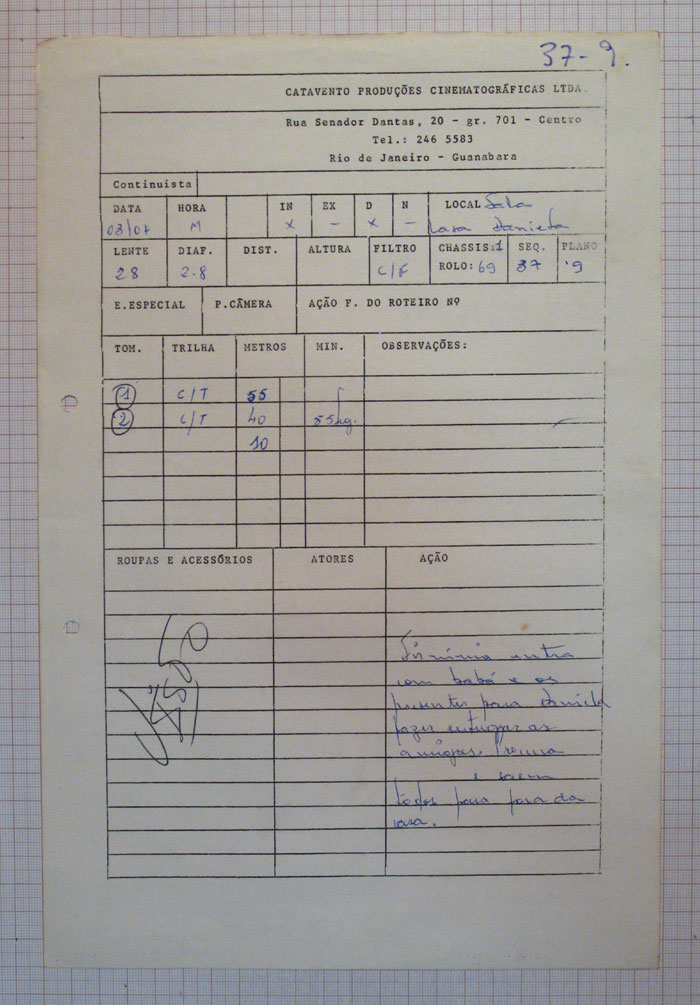 37-9.
CATAVENTO PRODUÇÕES CINEMATOGRÁFICAS LTDA.
Rua Senador Dantas, 20 - gr. 701 - Centro
Tel.: 246 5583
Rio de Janeiro - Guanabara
Continuista
DATA HORA IN EX D N LOCAL Sala
03/07 M X - X - Casa Daniela
LENTE DIAF. DIST. ALTURA FILTRO CHASSIS:1 SEQ. PLANO
28 2-8 C/F ROLO: 69 37 9
E.ESPECIAL P.CÂMERA AÇÃO F. DO ROTEIRO Nº
TOM. TRILHA METROS MIN. OBSERVAÇÕES:
1 C/T 55
2 C/T 40
10
ROUPAS E ACESSÓRIOS ATORES AÇÃO
entra
com babá e os
presentes para Daniela
fazer entregar as
amigas.
e saem
todos para fora da
casa.